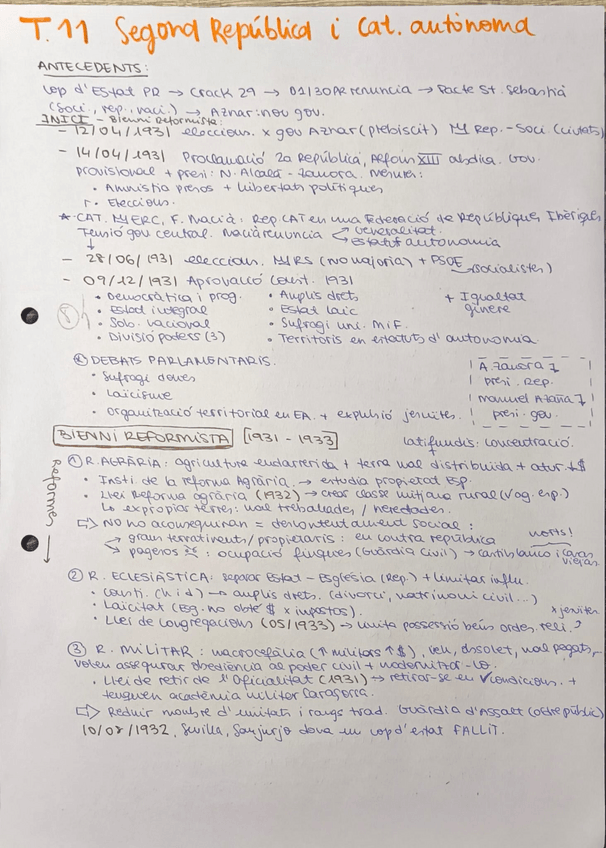 T.11 Segona República i Cat. autònoma
ANTECEDENTS:
Cop d'Estat PR → Crack 29 → 01/30 AR renuncia → Pacte St. Sebastià
(Soci., rep., naci.) → Aznar: nou gov.
INICI - Bienni Reformista:
- 12/04/1931 eleccions. x gov Aznar (plebiscit) Rep. - Soci. (ciutats)
- 14/04/1931 Proclamació 2a República, Alfons XIII abdica. Gov.
provisional + presi: N. Alcalá - Zamora. Mesures:
• Amnistia presos + llibertats polítiques
• Eleccions.
* CAT. ERC, F. Macià: Rep. CAT en una Federació de Repúbliques Ibèriques
Tensió gov central. Macià renuncia < Generalitat.
Estatut autonomia
- 28/06/1931 eleccions. RS (no majoria) + PSOE
(socialistes)
- 09/12/1931 Aprovació Const. 1931
• Democràtica i prog.
• Estat integral
• Sob. nacional
• Divisió poders (3)
• Amplis drets
• Estat laic
• Sufragi uni. M i F.
• Territoris en estatuts d'autonomia
+ Igualtat
gènere
DEBATS PARLAMENTARIS.
• Sufragi dones
• Laïcisme
• Organització territorial en EA. + expulsió jesuïtes.
A. Zamora
presi. Rep.
Manuel Azaña
presi. gov.
BIENNI REFORMISTA [1931 - 1933]
latifundis: concentració.
Reformes →
① R. AGRÀRIA: agricultura endarrerida + terra mal distribuïda + atur ↓$
• Insti. de la reforma Agrària. → estudia propietat Esp.
• Llei Reforma agrària (1932) → crear classe mitjana rural (V ag. esp.)
Lo expropiar terres: mal treballades / heretades.
⇨ No ho aconseguiran = descontentament social:
→ grans terratinents / propietaris: en contra república
morts!
→ pagesos: ocupació finques (Guàrdia Civil) → Castilblanco i Casas
Viejas.
② R. ECLESIÀSTICA: separar Estat - Església (Rep.) + limitar influ.
• Consti. (h i d) → amplis drets. (divorci, matrimoni civil...)
• Laïcitat (Esg. no obté $ x impostos).
x jesuïtes
• Llei de Congregacions (05/1933) → limita possessió béns ordes reli.
③ R. MILITAR: macrocefàlia (↑ militars ↑$), vell, obsolet, mal pagats,
volen assegurar obediència al poder civil + modernitzar-lo.
• Llei de retir de l'Oficialitat (1931) → retirar-se en condicions. +
tanquen acadèmia militar Saragossa.
⇨ Reduir nombre d'unitats i rangs trad. Guàrdia d'Assalt (ordre públic)
10/08/1932, Sevilla, Sanjurjo dona un cop d'estat FALLIT.